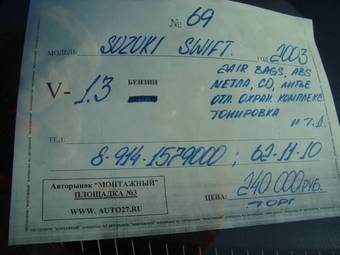 № 69
МОДЕЛЬ SUZUKI SWIFT. ГОД 2003
V- 1.3 БЕНЗИН
2AIR BAGS, ABS
МЕТЛА, CD, ЛИТЬЕ
ОТЛ. ОХРАН. КОМПЛЕКС
ТОНИРОВКА
и т.д.
ТЕЛ: 8-914-1579000; 62-11-10
Авторынок "МОНТАЖНЫЙ"
ПЛОЩАДКА №3
WWW.AUTO27.RU
ЦЕНА: 240 000 РУБ.
ТОРГ